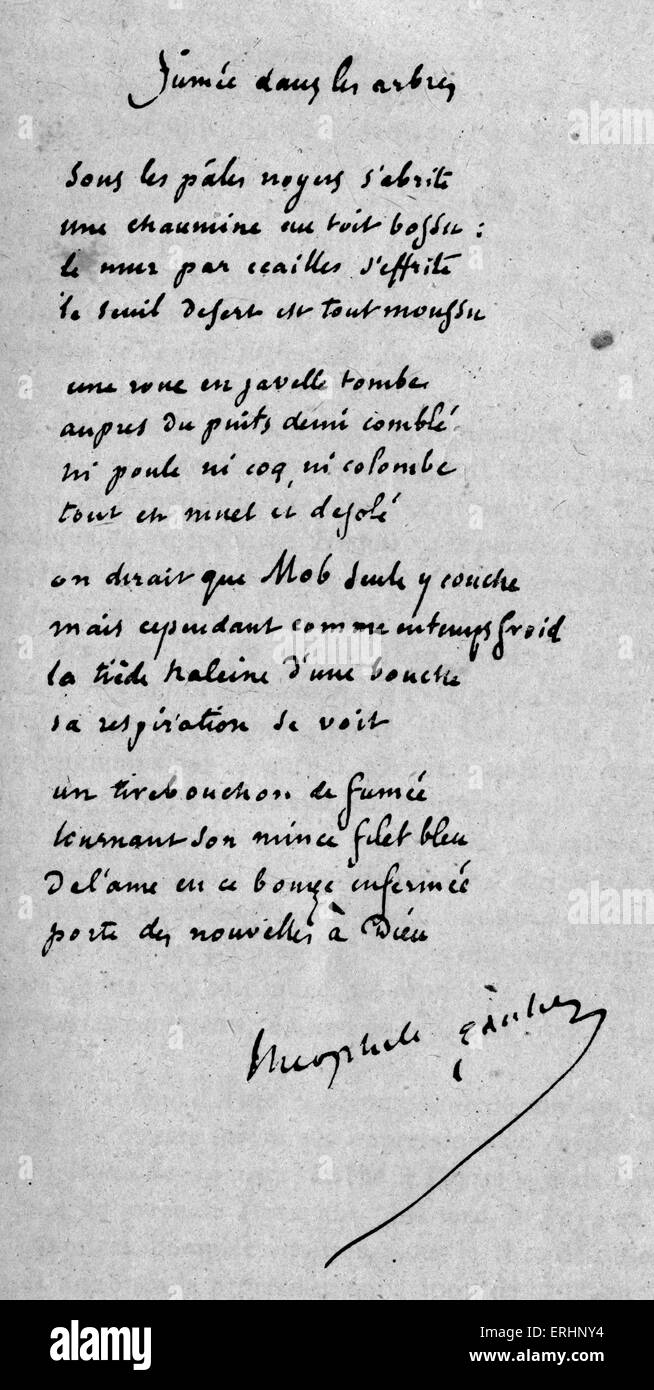 fumée dans les arbres
Sous les pâles noyers s'abrite
une chaumine au toit bossu :
le mur par ecailles s'effrite
le seuil desert est tout moussu
une roue en javelle tombe
aupres du puits demi comblé
ni poule ni coq, ni colombe
tout est muet et desolé
on dirait que Mob seule y couche
mais cependant comme en temps froid
la tiède haleine d'une bouche
sa respiration se voit
un tirebouchon de fumée
tournant son mince filet bleu
De l'ame en ce bouge enfermée
porte des nouvelles à Dieu
theophile gautier
alamy
alamy
alamy
alamy
Image ID: ERHNY4
www.alamy.com